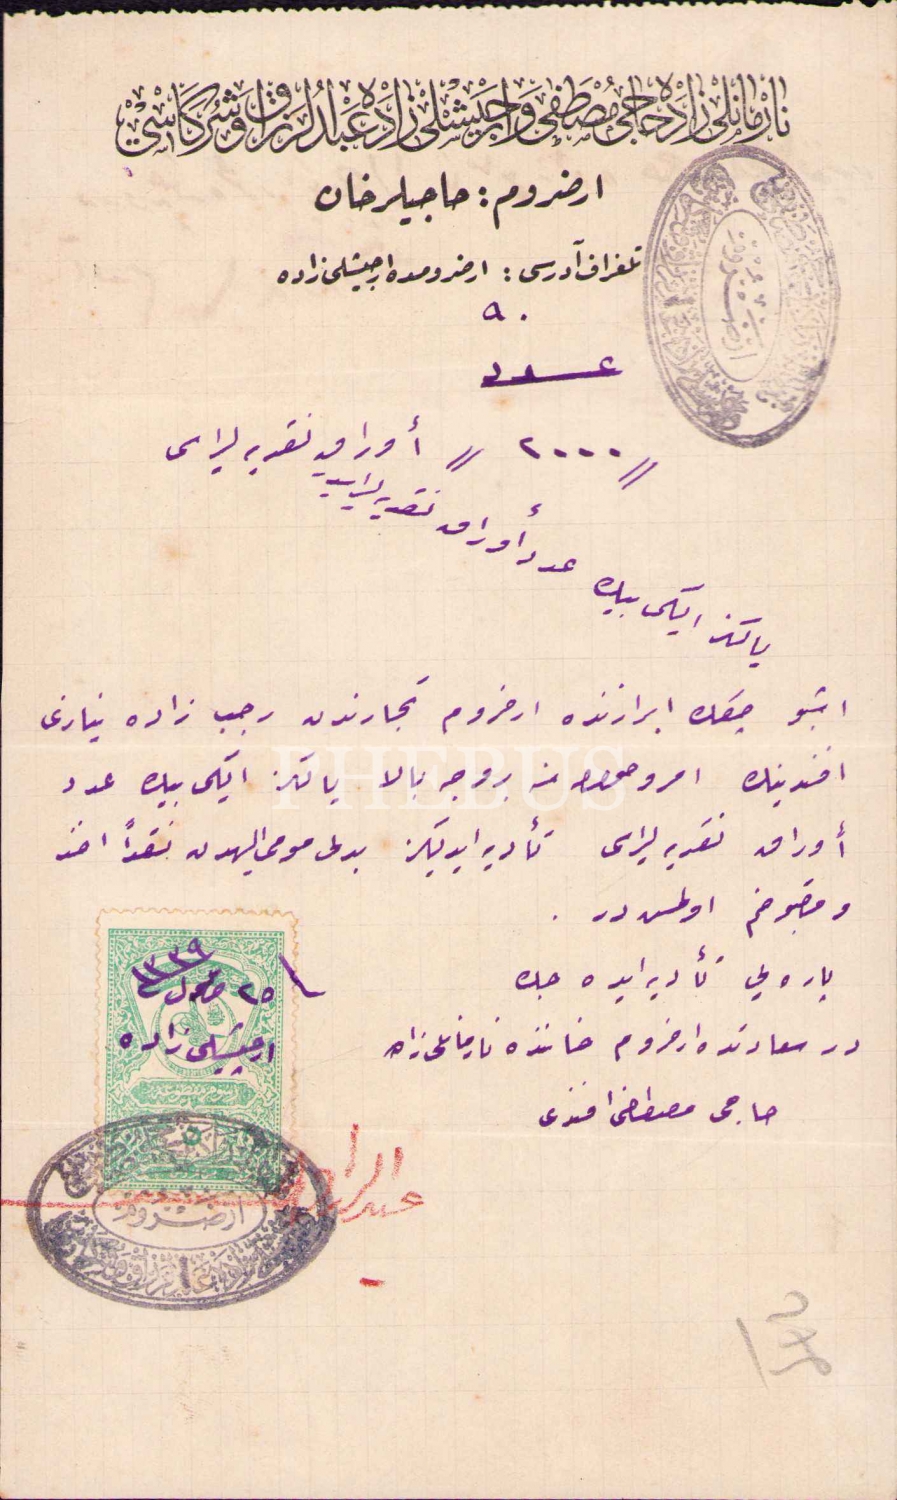 نارمانلی زاده حاجی مصطفی و ارجیشلی زاده عبدالرزاق و شرکاسی
ارضروم : حاجیلر خان
تلغراف آدرسی : ارضرومده ارجیشلی زاده
٩٠
عدد
// ٢٠٠٠ // أوراق نقدیه لیراسی
یالکز ایکی بیك عدد أوراق نقدیه لیراسیدر
اشبو چكك ابرازنده ارضروم تجارندن رجب زاده نیازی
افندینك امر و حواله سنه بروجه بالا یالکز ایکی بیك عدد
أوراق نقدیه لیراسی تأدیه ایدیکز بدلی مومی الیهدن نقداً اخذ
و مقبوضم اولمشدر .
پاره یی تأدیه ایده جك
در سعادتده ارضروم خاننده نارمانلی زاده
حاجی مصطفی افندی
١٣٣٩
٢٥
ارجیشلی زاده
ارضروم
PHEBUS